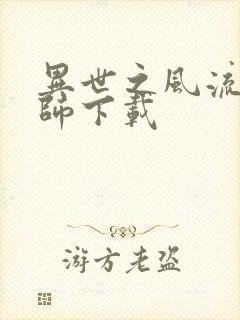 異世之風流
師下載
游方老盗